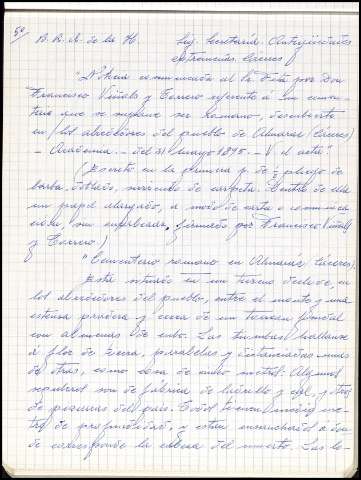 50
B. R. A. de la H. Leg. Secretaría. Antigüedades
extremeñas. Cáceres
"Noticia comunicada al Sr. Fita por Don
Francisco Viñals y Torrero referente á un cemen-
terio que se supone ser Romano, descubierto
en los alrededores del pueblo de Almaraz (Cáceres)
- Academia - del 31 Mayo 1895 - V. el acta"
(Escrito en la primera p. de ½ pliego de
barba, doblado, sirviendo de carpeta. Dentro de ella
un papel alargado, a modo de carta o comunica-
ción, sin encabezar, firmado por Francisco Viñals
y Torrero.)
"Cementerio romano en Almaraz (Cáceres).
Está situado en un terreno declive, en
los alrededores del pueblo, entre el monte y una
extensa pradera y cerca de un torreón feudal
con almenas de cubo. Las tumbas hállanse
á flor de tierra, paralelas y distanciadas unas
de otras, como cosa de medio metro. Algunos
sepulcros son de fábrica de ladrillo y cal, y otros
de pizarras del país. Todos tienen medio me-
tro de profundidad, y están ensanchados a don-
de corresponde la cabeza del muerto. Las lo-